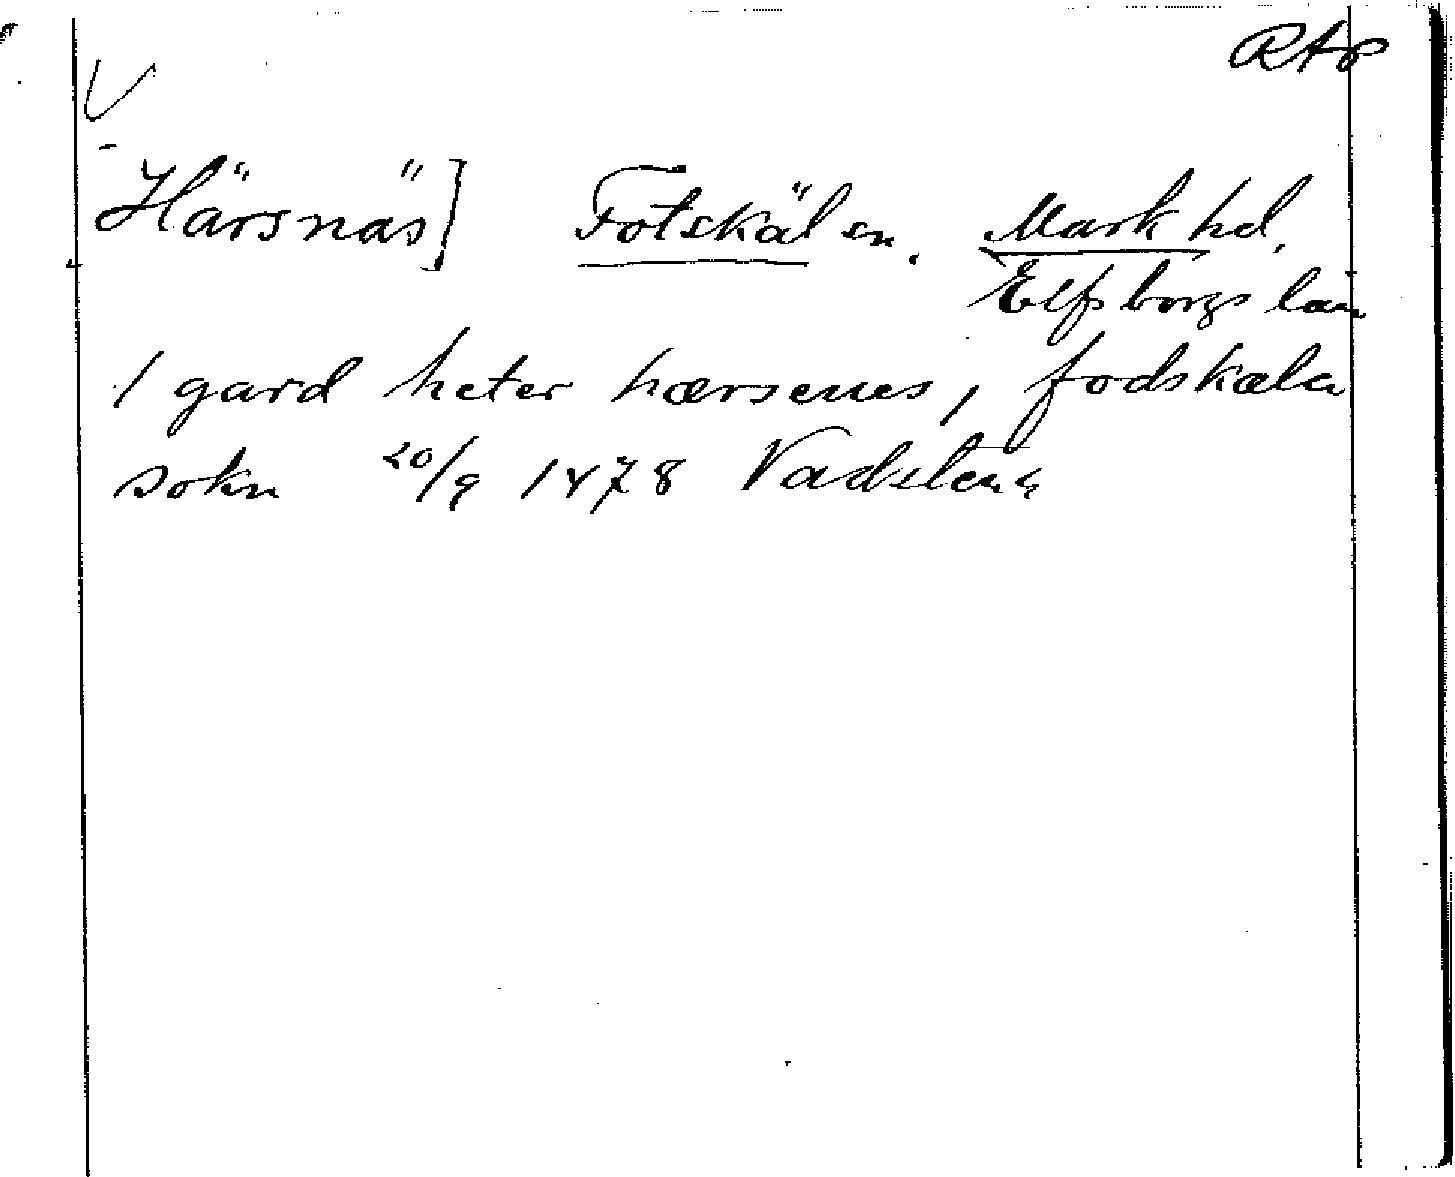 RAp
Härsnäs] Fotskäl sn. Mark hd.
Elfsborgs län
1 gard heter hærsenes, fodskæla
sokn 20/9 1478 Vadstena